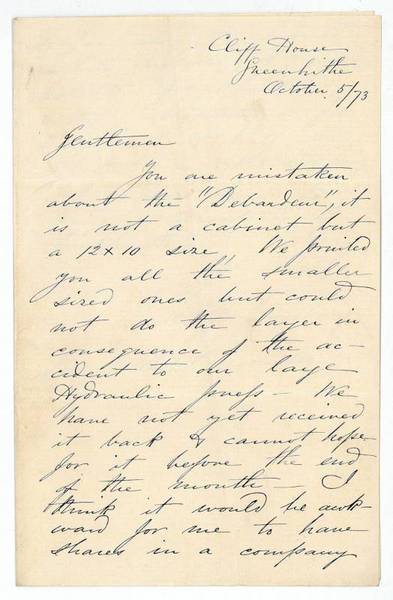 Cliff House
Greenhithe
October 5/73
Gentlemen
You are mistaken
about the "Debardeur", it
is not a cabinet but
a 12 x 10 size, We printed
you all the smaller
sized ones but could
not do the larger in
consequence of the ac-
cident to our large
Hydraulic press - We
have not yet received
it back & cannot hope
for it before the end
of the month - I
think it would be awk-
ward for me to have
shares in a company